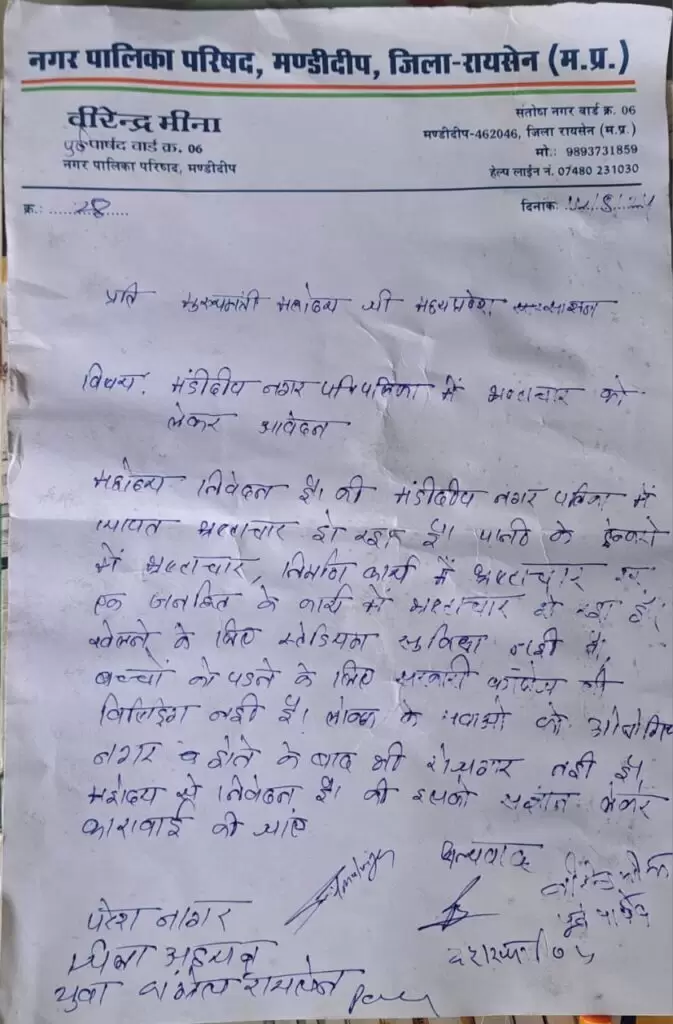 नगर पालिका परिषद, मण्डीदीप, जिला-रायसेन (म.प्र.)
वीरेन्द्र मीना
पूर्व पार्षद वार्ड क्र. 06
नगर पालिका परिषद, मण्डीदीप
संतोष नगर वार्ड क्र. 06
मण्डीदीप-462046, जिला रायसेन (म.प्र.)
मो.: 9893731859
हेल्प लाईन नं. 07480 231030
क्र.: 28
दिनांक:
प्रति मुख्यमंत्री महोदय जी मध्यप्रदेश
विषय. मंडीदीप नगर में भ्रष्टाचार को
लेकर आवेदन
महोदय निवेदन है। की मंडीदीप नगर पलिका में
भ्रष्टाचार हो रहा है। पानी के टेन्करो
में भ्रष्टाचार, निर्माण कार्य में भ्रष्टाचार
एक जनहित के कार्य में भ्रष्टाचार हो रहा है।
खेलने के लिए स्टेडियम सुविधा नही है,
बच्चों को पडने के लिए सरकारी कॉलेज की
बिल्डिंग नही है। के को
नगर होने के बाद भी रोजगार नही है।
महोदय से निवेदन है। की इसको लेकर
की जाए
धन्यवाद
नागर
युवा रायसेन